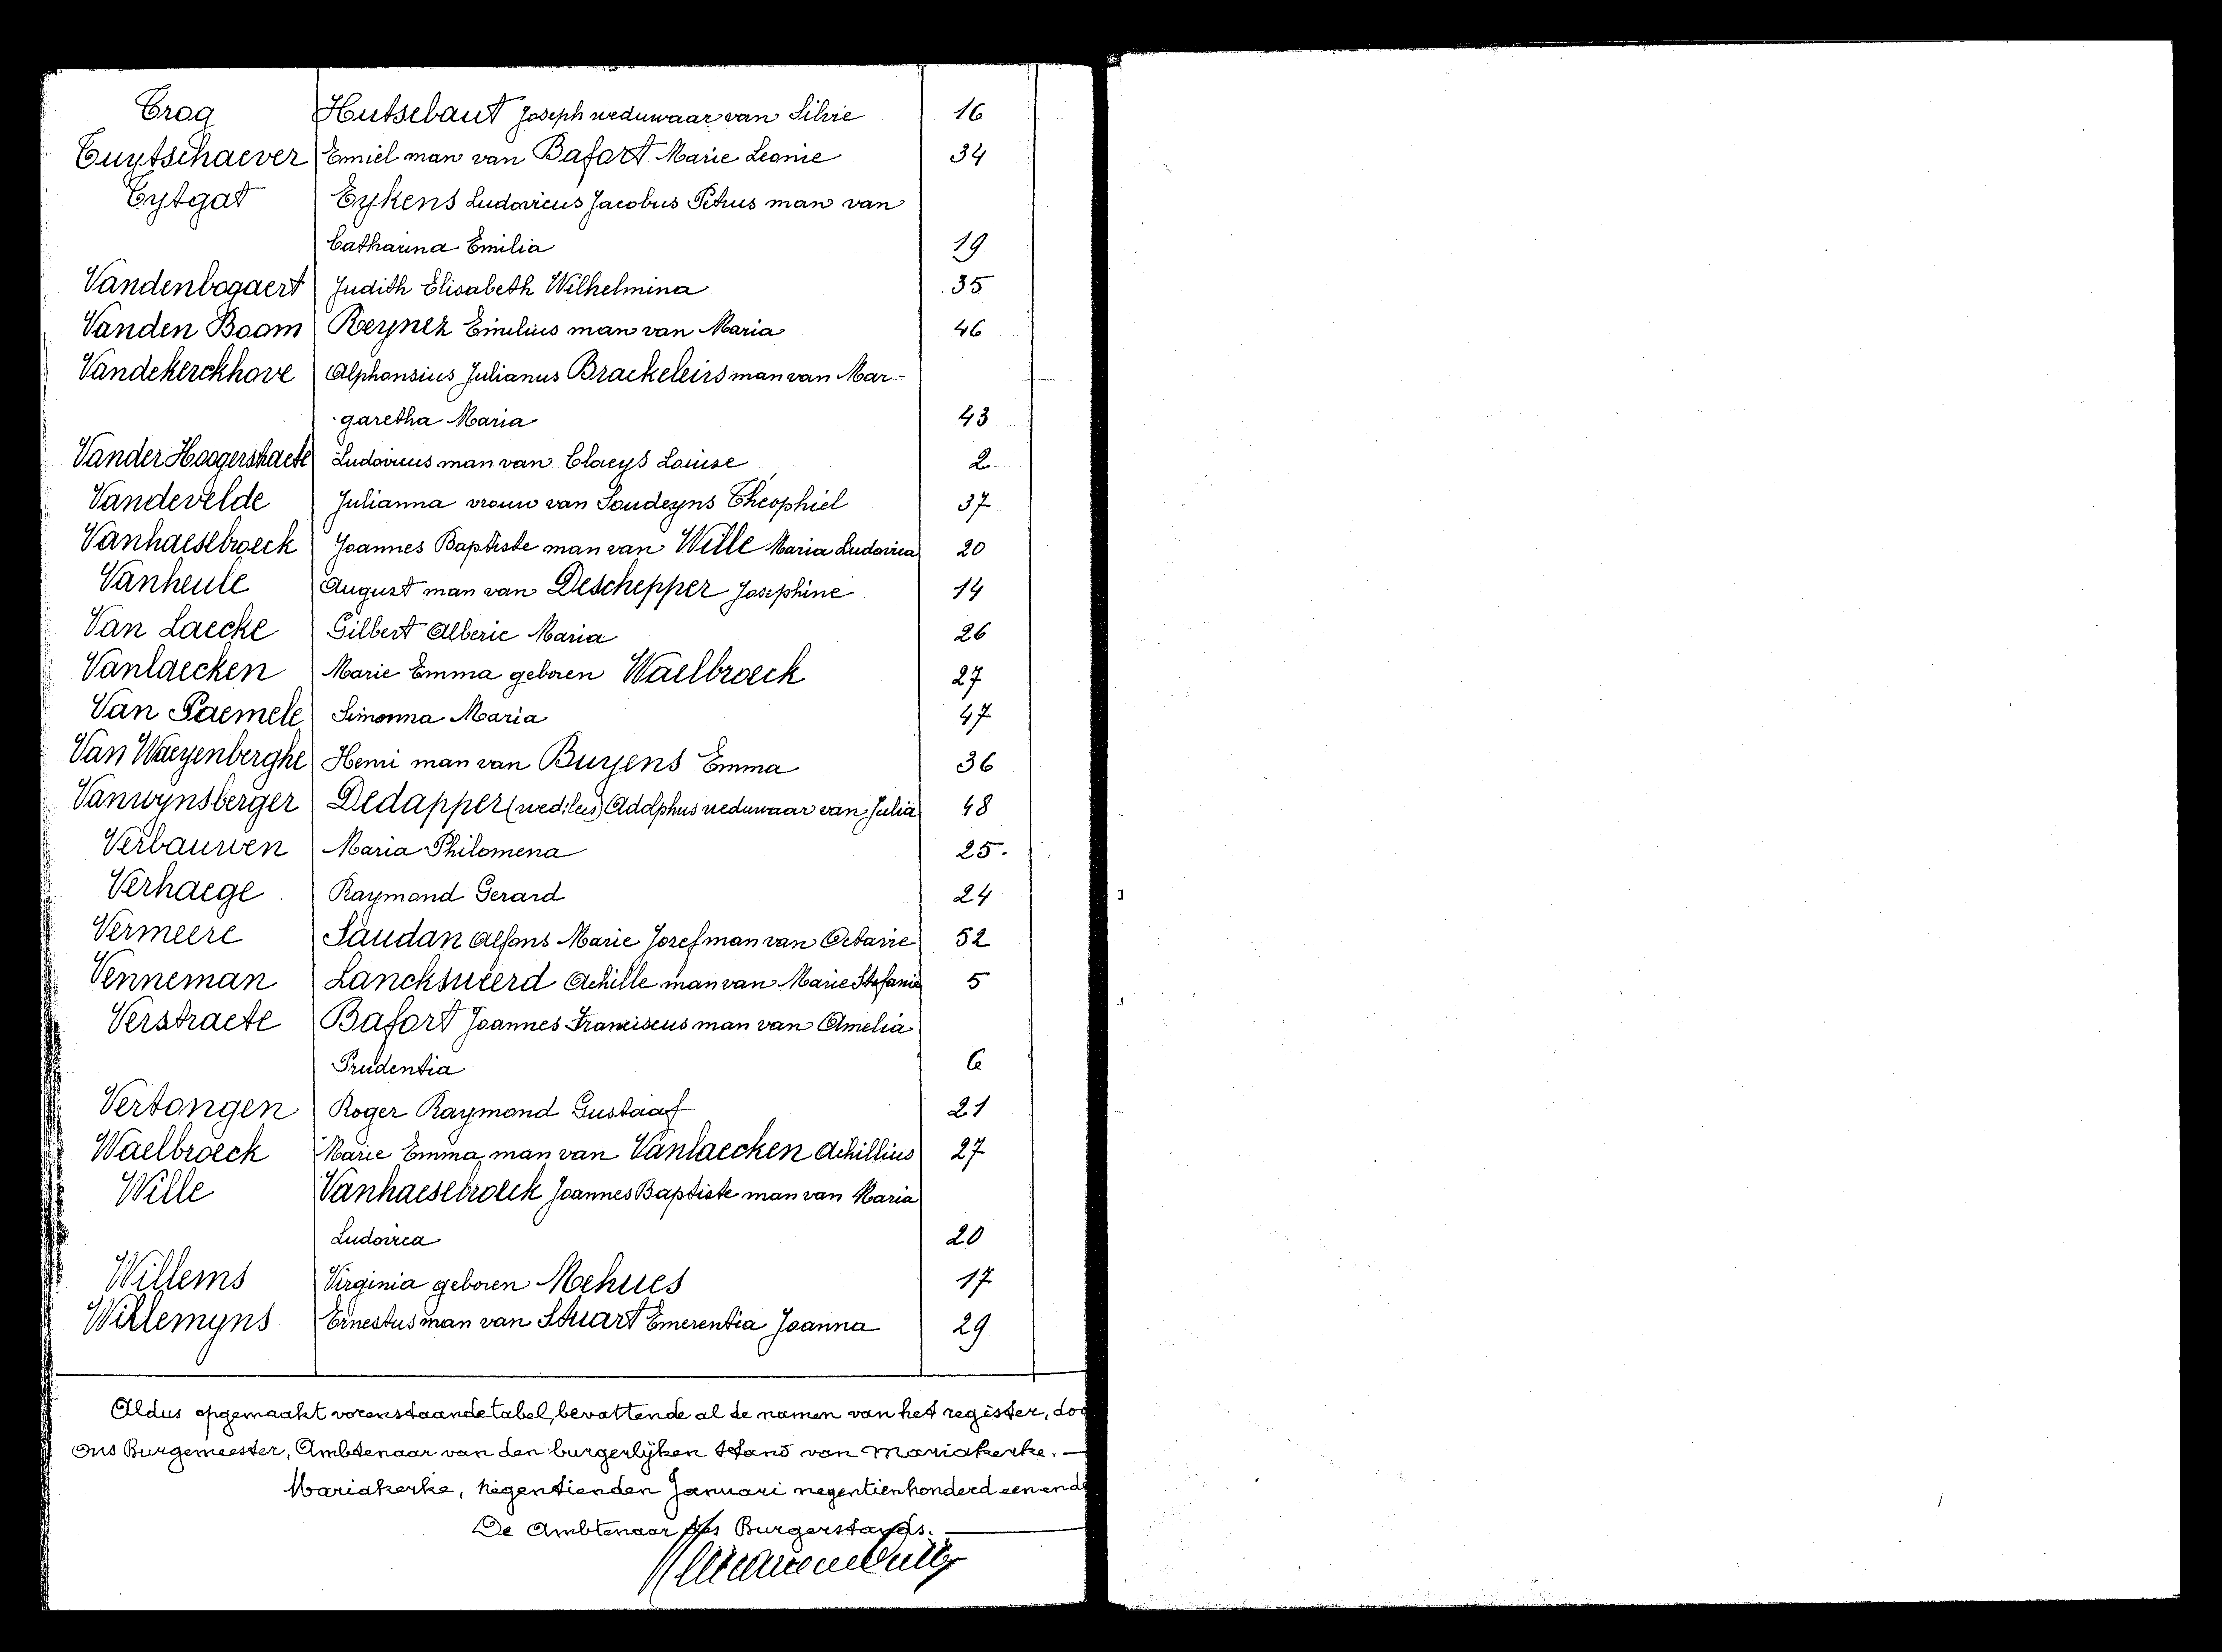 Trog Hutsebaut Joseph weduwaar van Silvie 16
Tuytschaever Emiel man van Bafort Marie Leonie 34
Tytgat Eykens Ludovicus Jacobus Petrus man van
Catharina Emilia 19
Vandenbogaert Judith Elisabeth Wilhelmina 35
Vanden Boom Reynez Emilius man van Maria 46
Vandekerckhove Alphonsius Julianus Brackeleirs man van Mar-
garetha Maria 43
Vander Hoogerstraete Ludovicus man van Claeys Louise 2
Vandevelde Julianna vrouw van Soudeyns Theophiel 37
Vanhaesebroeck Joannes Baptiste man van Wille Maria Ludovica 20
Vanheule August man van Deschepper Josephine 14
Van Laecke Gilbert Alberic Maria 26
Vanlaecken Marie Emma geboren Waelbroeck 27
Van Paemele Simonna Maria 47
Van Waeyenberghe Henri man van Buyens Emma 36
Vanwynsberger Dedapper Adolphus weduwaar van Julia 48
Verbauwen Maria Philomena 25.
Verhaege Raymond Gerard 24
Vermeere Saudan Alfons Marie Jozef man van Octavie 52
Venneman Lancksweerd Achille man van Marie Stefanie 5
Verstraete Bafort Joannes Franciscus man van Amelia
Prudentia 6
Vertongen Roger Raymond Gustaaf 21
Waelbroeck Marie Emma man van Vanlaecken Achillius 27
Wille Vanhaesebroeck Joannes Baptiste man van Maria
Ludovica 20
Willems Virginia geboren Mehues 17
Willemyns Ernestus man van Stuart Emerentia Joanna 29
Aldus opgemaakt vorenstaande tabel, bevattende al de namen van het register, doo
ons Burgemeester, Ambtenaar van den burgerlijken stand van Mariakerke. —
Mariakerke, negentienden Januari negentienhonderd een end
De Ambtenaar des Burgerstands. —